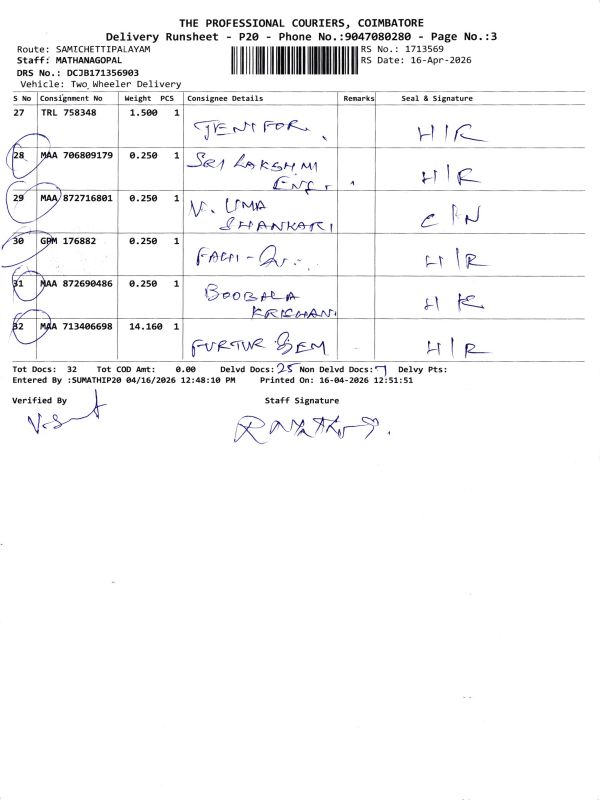 THE PROFESSIONAL COURIERS, COIMBATORE
Delivery Runsheet - P20 - Phone No.:9047080280 - Page No.:3
Route: SAMICHETTIPALAYAM RS No.: 1713569
Staff: MATHANAGOPAL RS Date: 16-Apr-2026
DRS No.: DCJB171356903
Vehicle: Two Wheeler Delivery
S No Consignment No Weight PCS Consignee Details Remarks Seal & Signature
27 TRL 758348 1.500 1 JENIFOR. H/R
28 MAA 706809179 0.250 1 SRI LAKSHMI H/R
ENG.
29 MAA 872716801 0.250 1 V. UMA C/N
SHANKARI
30 GPM 176882 0.250 1 H/R
31 MAA 872690486 0.250 1 BOOBALA H R
KRISHAN
32 MAA 713406698 14.160 1 H/R
Tot Docs: 32 Tot COD Amt: 0.00 Delvd Docs: 25 Non Delvd Docs: 7 Delvy Pts:
Entered By :SUMATHIP20 04/16/2026 12:48:10 PM Printed On: 16-04-2026 12:51:51
Verified By Staff Signature